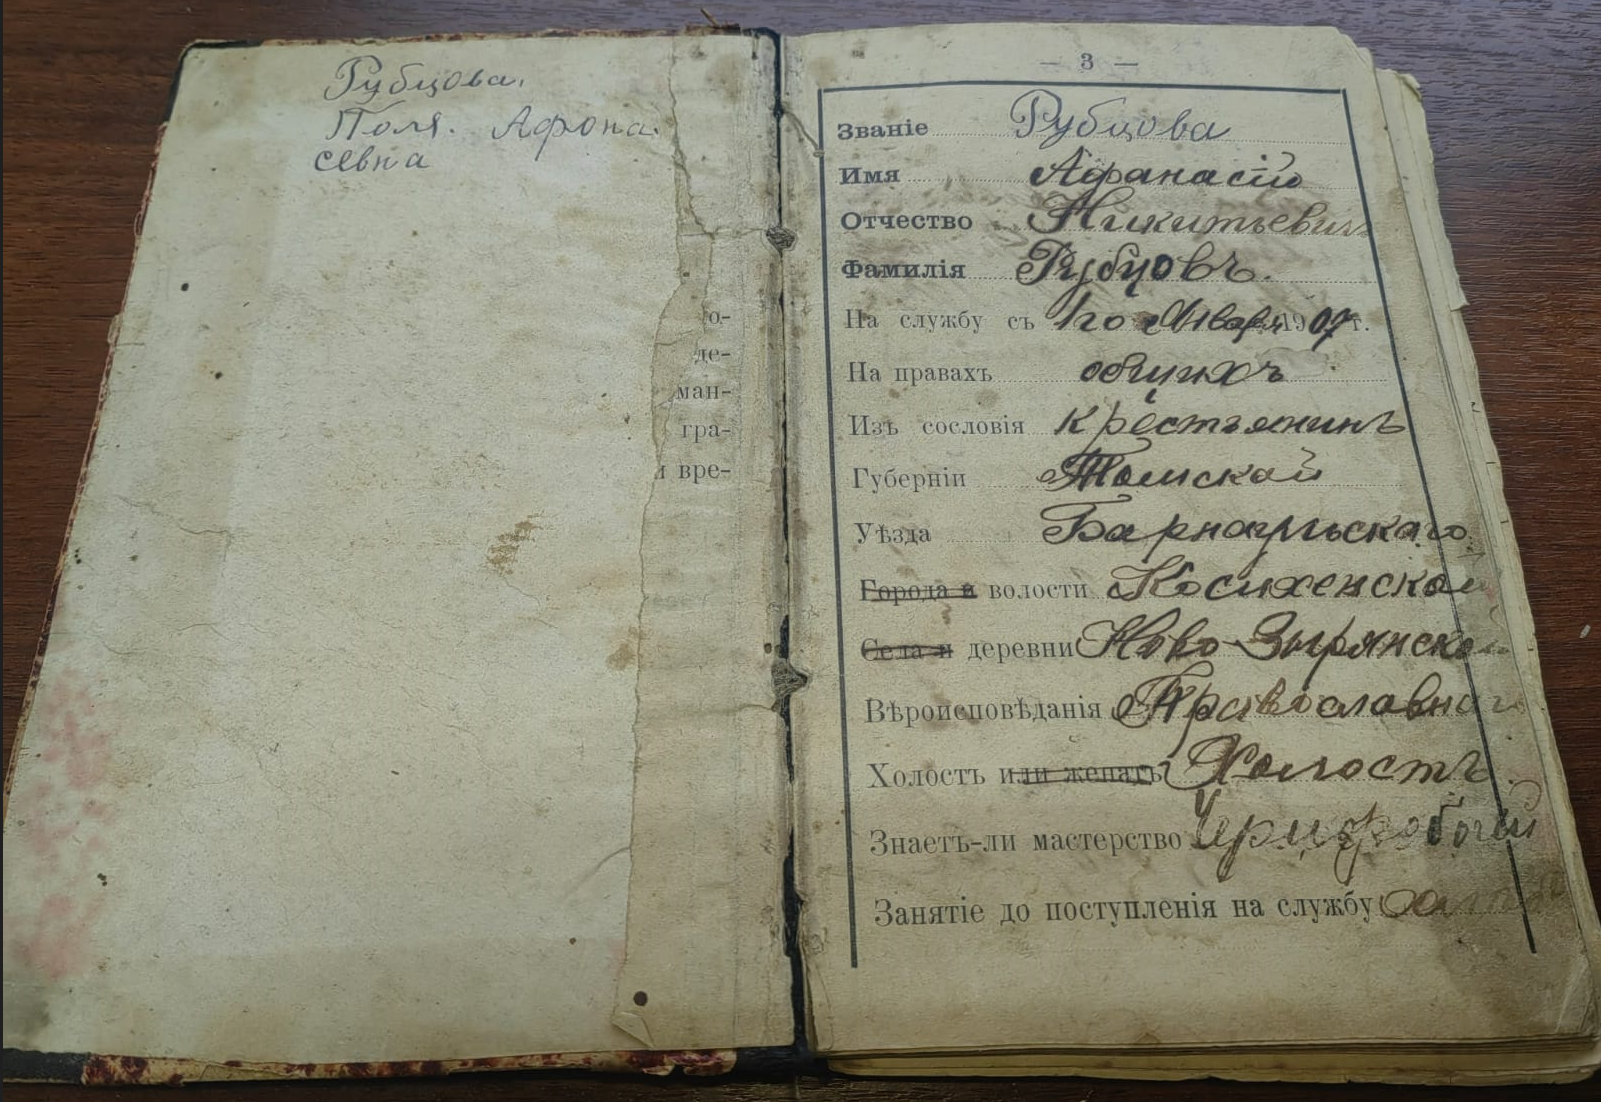 Рубцова.
Поля. Афона-
севна
о-
де-
ман-
гра-
вре-
— 3 —
Званіе Рубцова
Имя Афанасій
Отчество Никитьевич
Фамилія Рубцовъ.
На службу съ 1го Января 1907 г.
На правахъ общихъ
Изъ сословія крестьянинъ
Губерніи Томской
Уѣзда Барнаульскаго
Города и волости Косихенской
Села и деревни Ново-Зырянской
Вѣроисповѣданія Православнаго
Холостъ или женатъ Холостъ
Знаетъ-ли мастерство
Занятіе до поступленія на службу